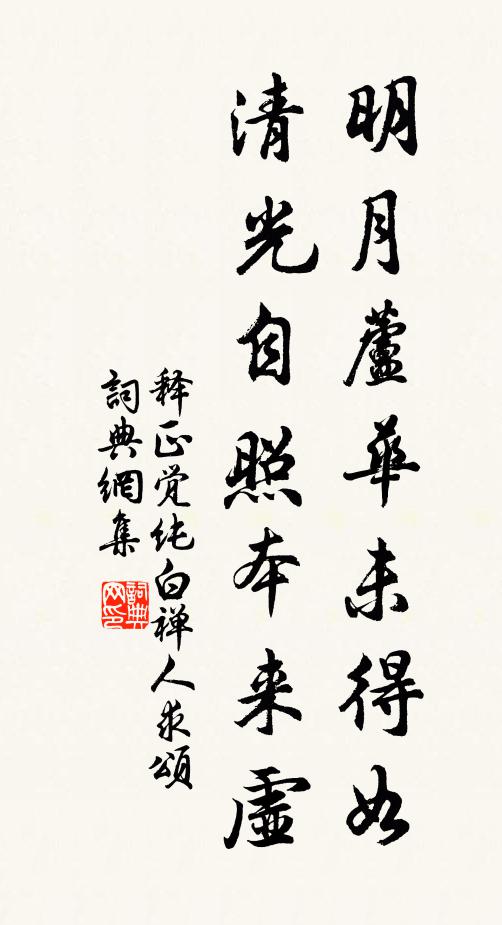 明月蘆華未得如
清光自照本来虛
释正觉纯白禅人求頌
詞典網集
詞典网印